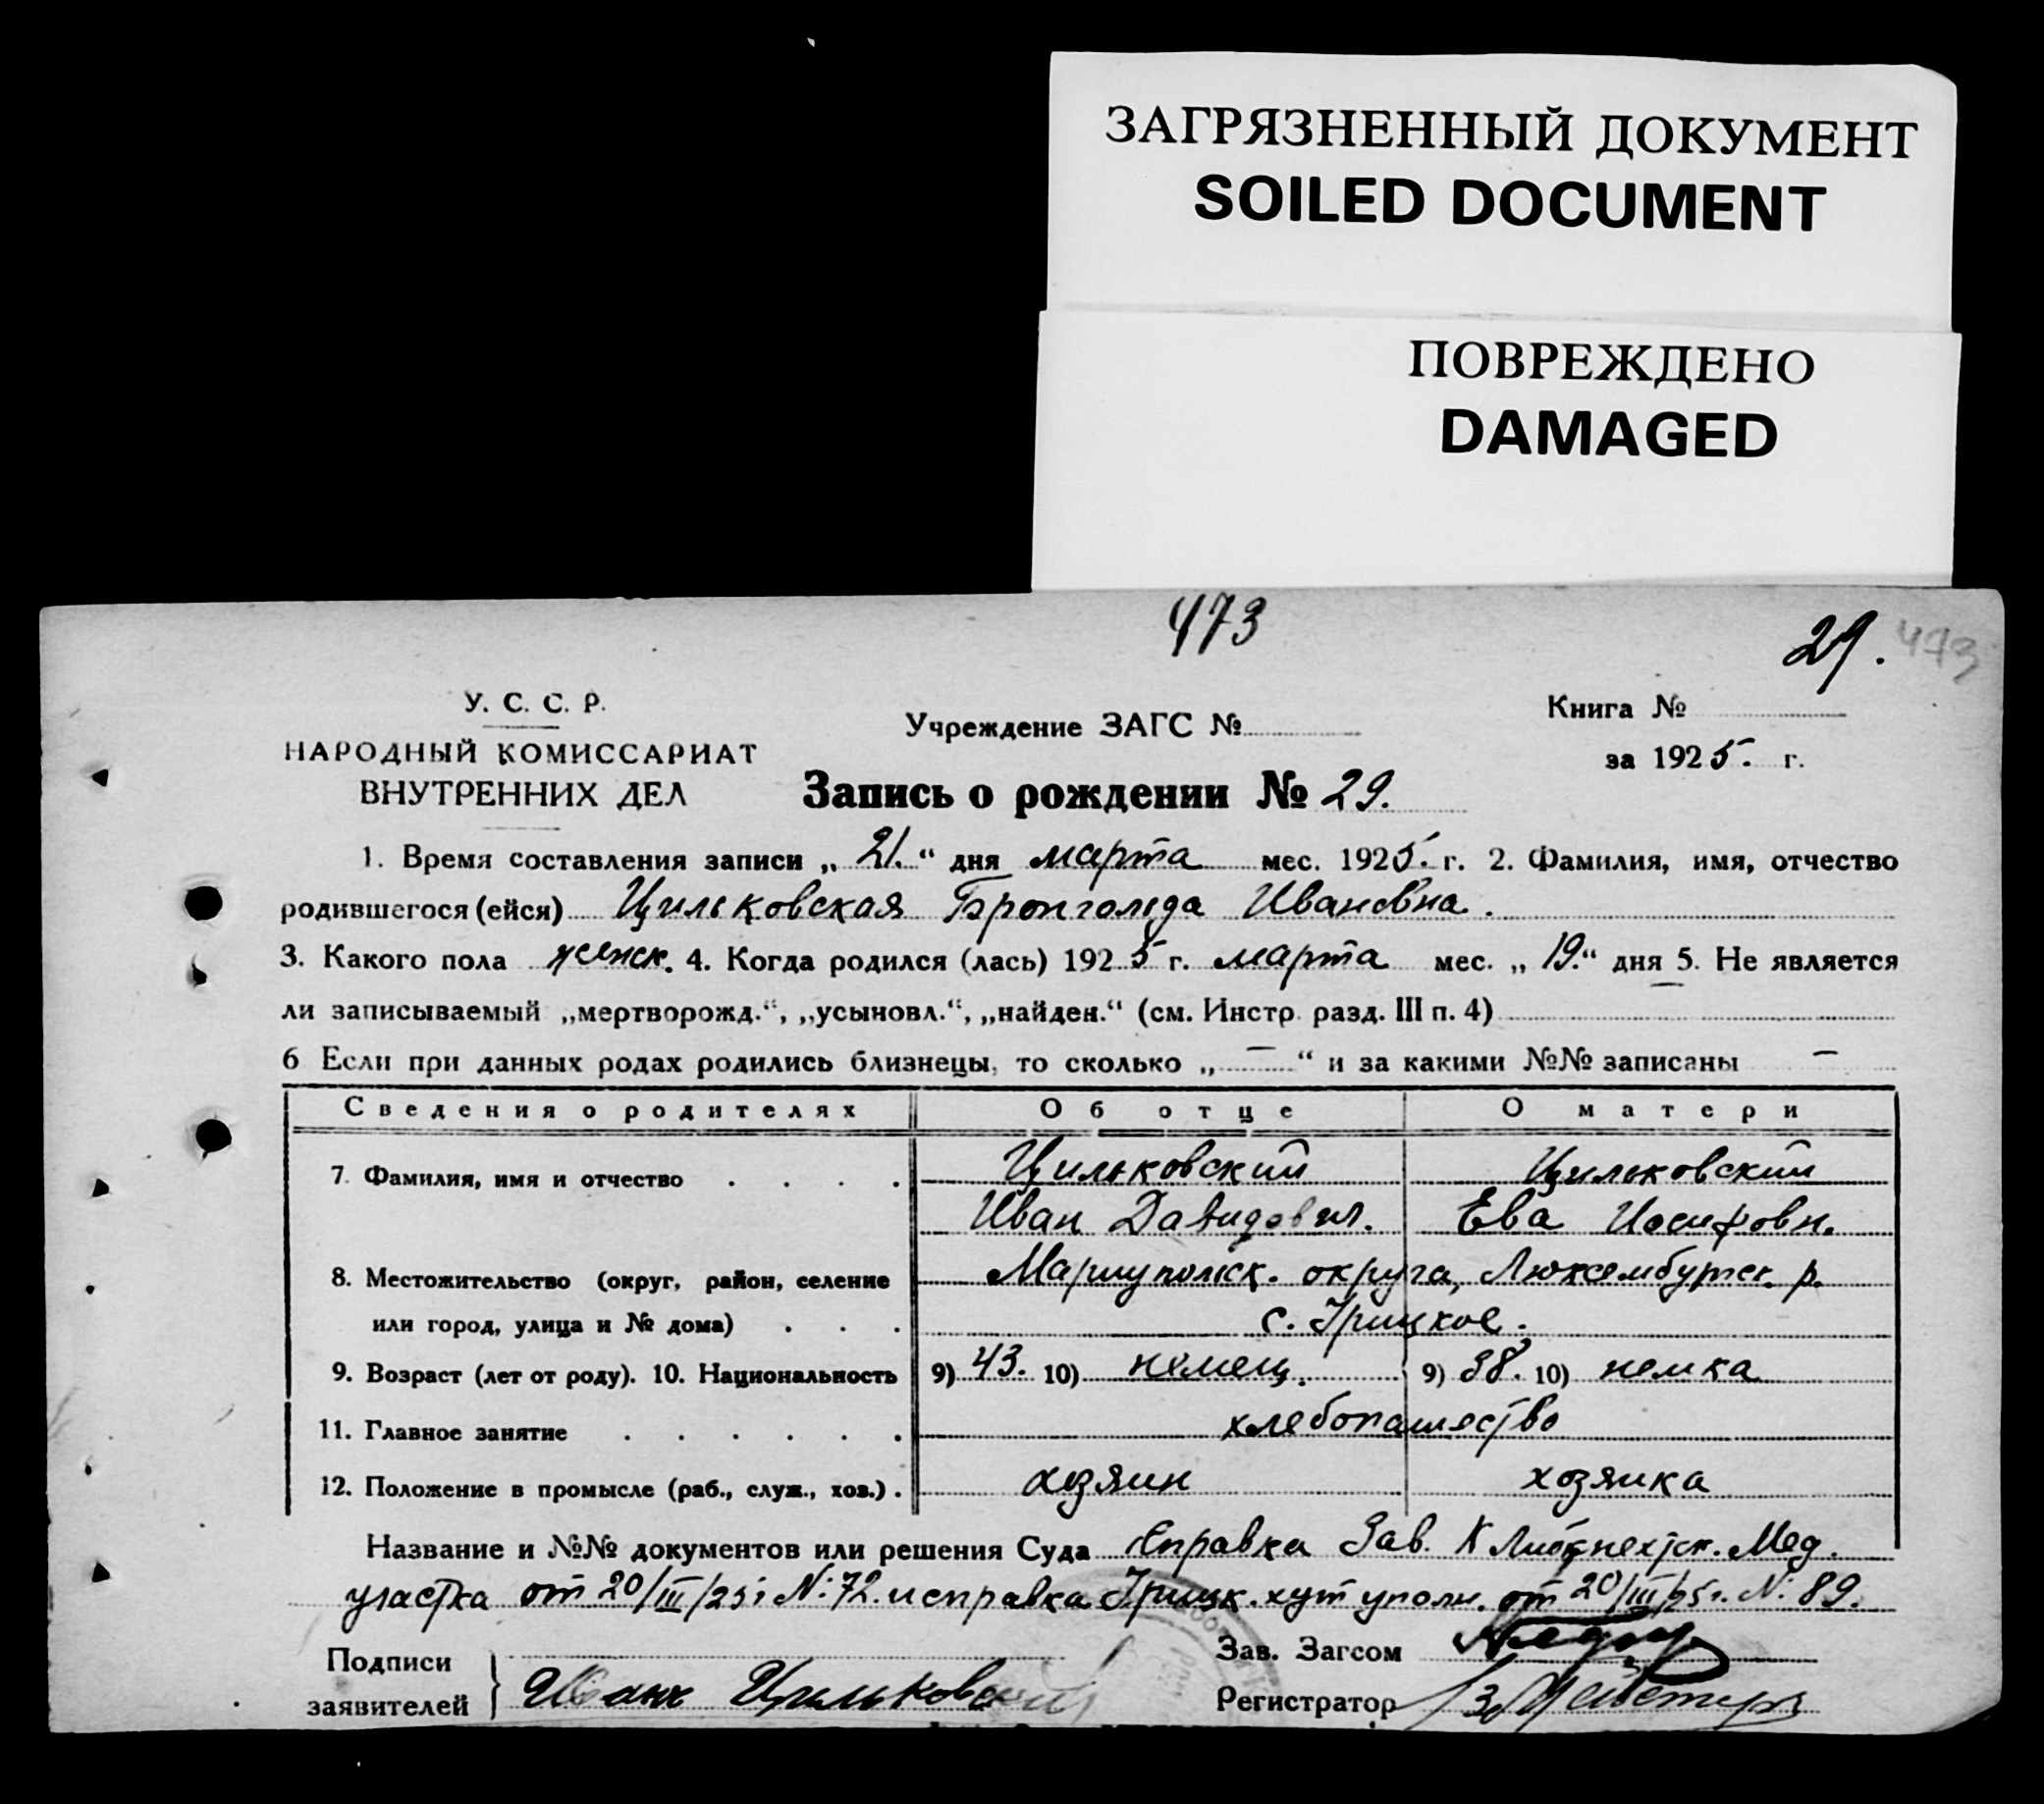 ЗАГРЯЗНЕННЫЙ ДОКУМЕНТ
SOILED DOCUMENT
ПОВРЕЖДЕНО
DAMAGED
473
29. 473
У. С. С. Р.
НАРОДНЫЙ КОМИССАРИАТ
ВНУТРЕННИХ ДЕЛ
Учреждение ЗАГС №
Книга №
за 1925. г.
Запись о рождении № 29.
1. Время составления записи „ 21. “ дня марта мес. 1925. г. 2. Фамилия, имя, отчество
родившегося (ейся) Цильковская Бронгольда Ивановна.
3. Какого пола женск. 4. Когда родился (лась) 1925 г. марта мес. „ 19. “ дня 5. Не является
ли записываемый „мертворожд.“, „усыновл.“, „найден.“ (см. Инстр. разд. III п. 4) —
6 Если при данных родах родились близнецы, то сколько „ — “ и за какими №№ записаны —
Сведения о родителях Об отце О матери
7. Фамилия, имя и отчество . . . . Цильковский Цильковский
Иван Давидович. Ева Иосифовн.
8. Местожительство (округ, район, селение Мариупольск. округа, Люксембургск. р.
или город, улица и № дома) . . . с. Грицкое.
9. Возраст (лет от роду). 10. Национальность 9) 43. 10) немец. 9) 38. 10) немка
11. Главное занятие . . . . . . хлебопашество
12. Положение в промысле (раб., служ., хоз.) . хозяин хозяйка
Название и №№ документов или решения Суда Справка Зав. К Либкнехтск. Мед.
участка от 20/III/25г N: 72. и справка Грицк. хут уполн. от 20/III/25г. N: 89.
Подписи
заявителей
Иванъ Цильковский
Зав. Загсом
Регистратор